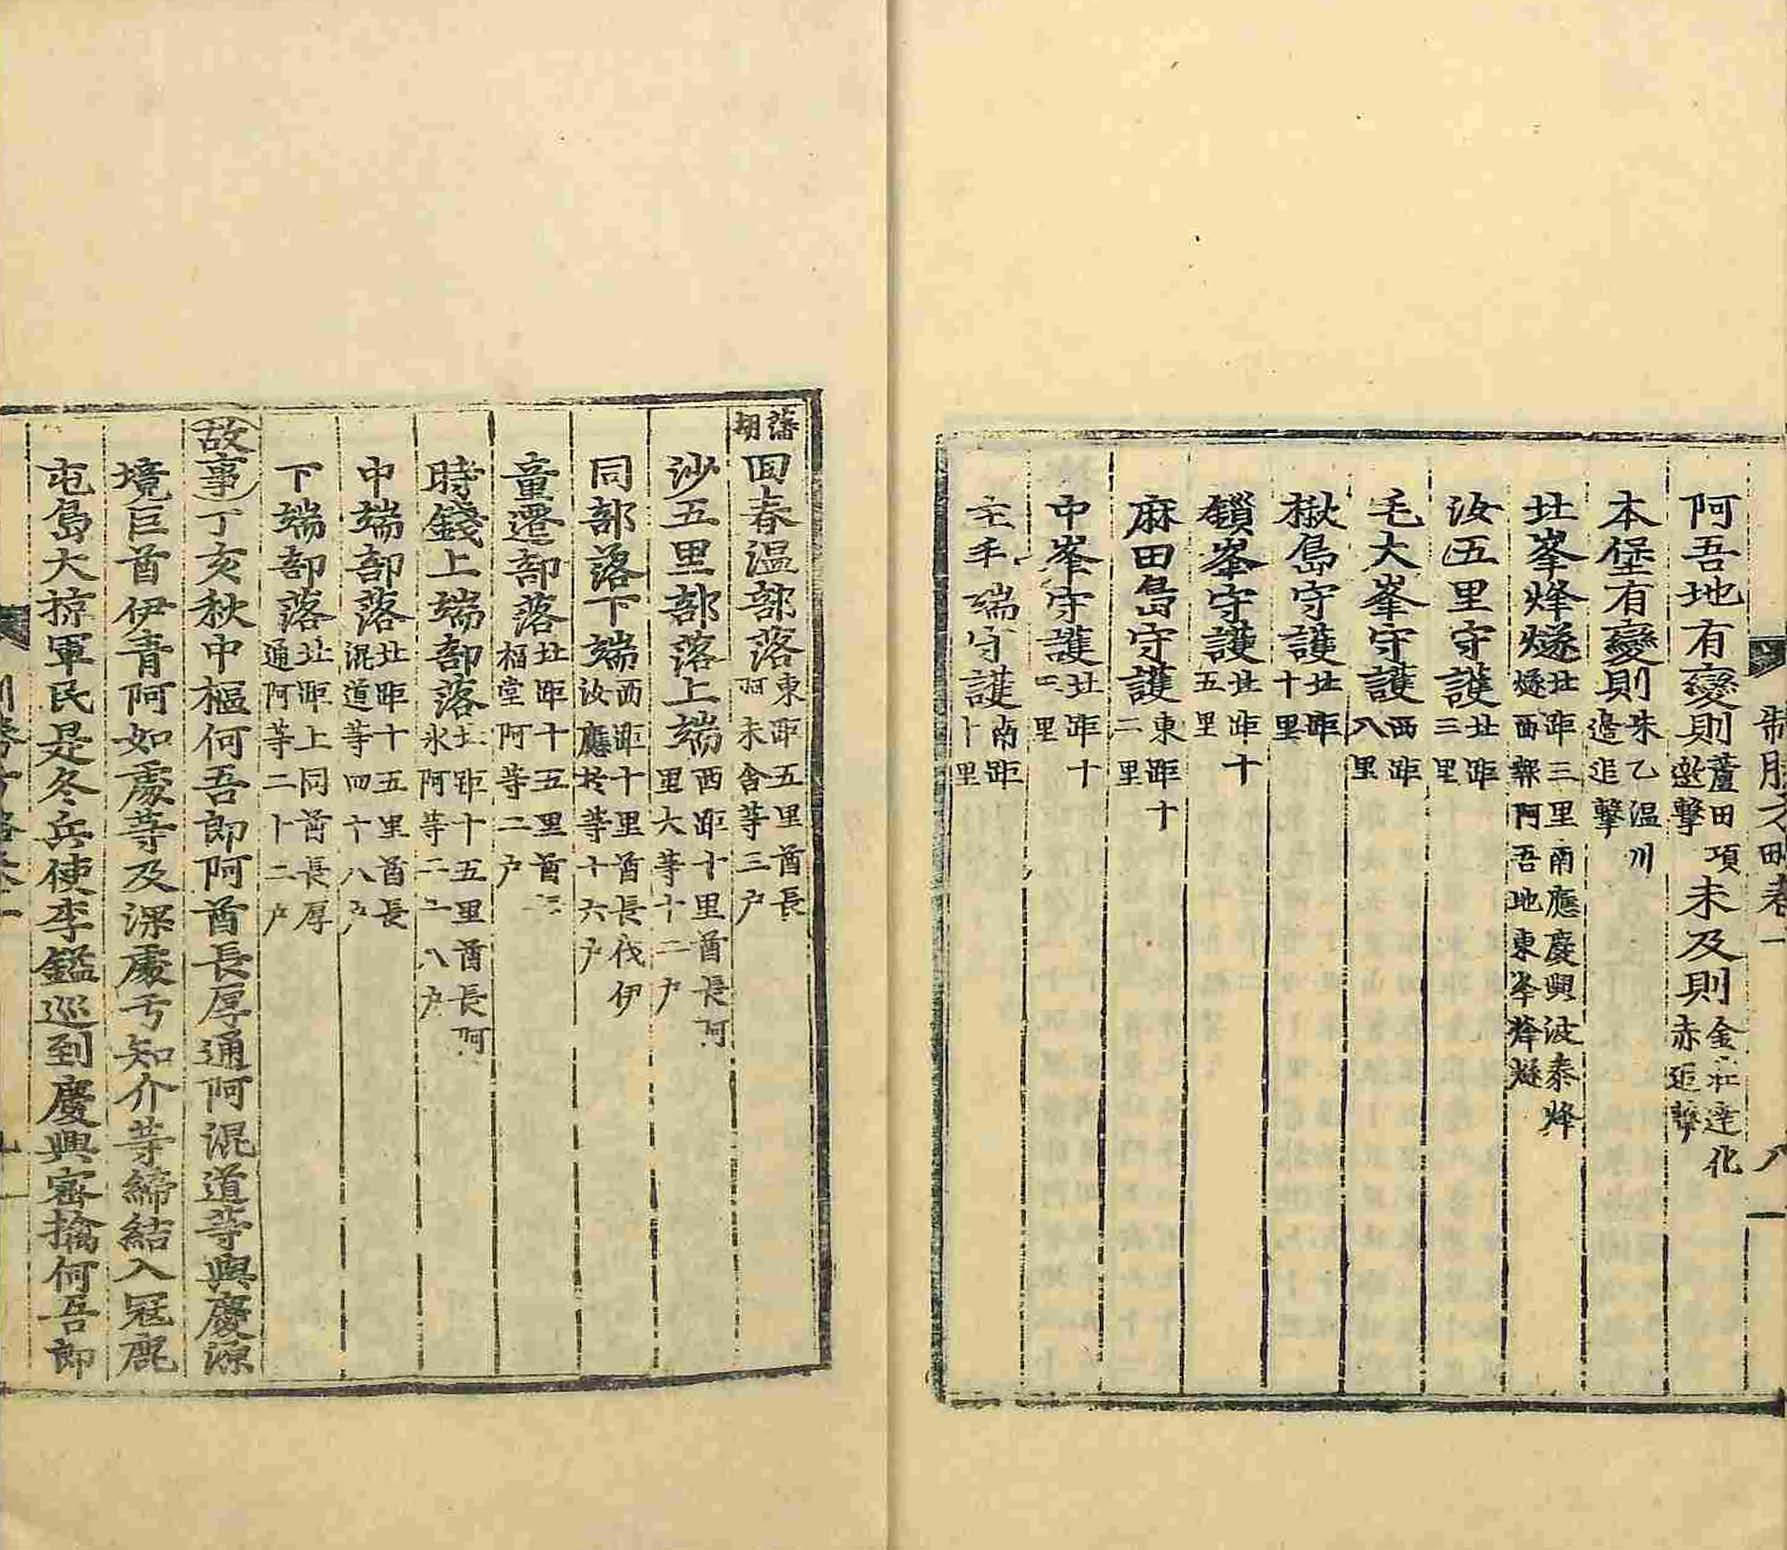 制勝方略卷一 八
阿吾地有變則蘆田項邀擊未及則金 壯達化赤追擊
本堡有變則朱乙温川邊追擊
北峯烽燧北距三里南應慶興波泰烽燧西報阿吾地東峯烽燧
汝五里守護北距三里
毛大峯守護西距八里
楸島守護北距十里
鎖峯守護北距十五里
麻田島守護東距十二里
中峯守護北距十二里
主羊端守護南距十里
藩胡
回春温部落東距五里酋長阿未含等三戶
沙五里部落上端西距十里酋長阿里大等十二戶
同部落下端西距十里酋長伐伊汝應於等十六戶
童遷部落北距十五里酋 福堂阿等二戶
時錢上端部落北距十五里酋長阿氷阿等二十八戶
中端部落北距十五里酋長混道等四十八戶
下端部落北距上同酋長厚通阿等二十二戶
故事丁亥秋中樞何吾郎阿酋長厚通阿混道等與慶源
境巨酋伊青阿如處等及深處亐知介等締結入冦鹿
屯島大掠軍民是冬兵使李鎰巡到慶興密擒何吾郎